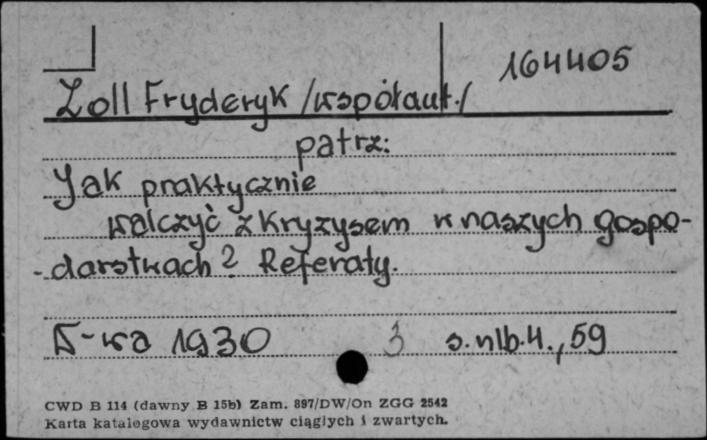 164405
Zoll Fryderyk /współaut./
patrz:
Jak praktycznie
walczyć z kryzysem w naszych gospo-
-darstwach? Referaty.
W-wa 1930 3 s.nlb.4., 59
CWD B 114 (dawny B 15b) Zam. 897/DW/On ZGG 2542
Karta katalogowa wydawnictw ciągłych i zwartych.